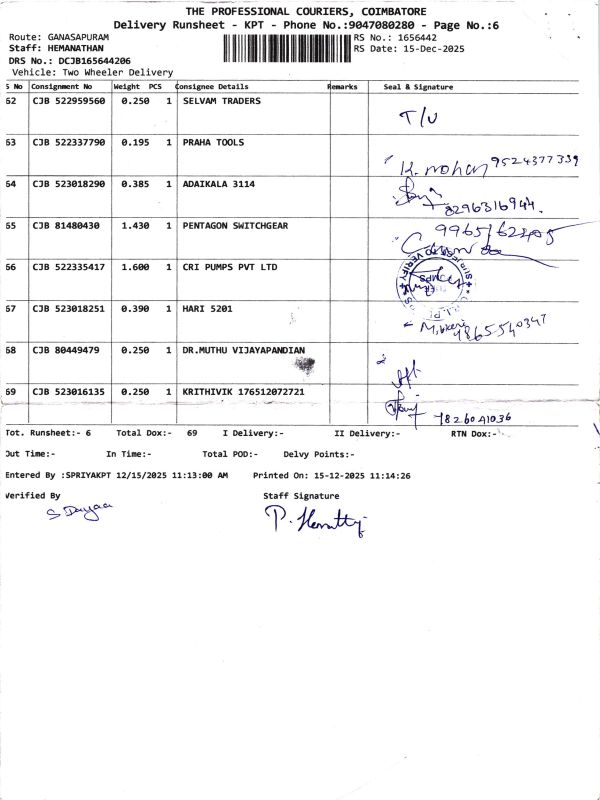 THE PROFESSIONAL COURIERS, COIMBATORE
Delivery Runsheet - KPT - Phone No.:9047080280 - Page No.:6
Route: GANASAPURAM RS No.: 1656442
Staff: HEMANATHAN RS Date: 15-Dec-2025
DRS No.: DCJB165644206
Vehicle: Two Wheeler Delivery
S No Consignment No Weight PCS Consignee Details Remarks Seal & Signature
62 CJB 522959560 0.250 1 SELVAM TRADERS T/U
63 CJB 522337790 0.195 1 PRAHA TOOLS K. mohan 9524377339
64 CJB 523018290 0.385 1 ADAIKALA 3114 8296316944.
65 CJB 81480430 1.430 1 PENTAGON SWITCHGEAR
66 CJB 522335417 1.600 1 CRI PUMPS PVT LTD
67 CJB 523018251 0.390 1 HARI 5201 9865540347
68 CJB 80449479 0.250 1 DR.MUTHU VIJAYAPANDIAN
69 CJB 523016135 0.250 1 KRITHIVIK 176512072721 7826041036
Tot. Runsheet:- 6 Total Dox:- 69 I Delivery:- II Delivery:- RTN Dox:-
Out Time:- In Time:- Total POD:- Delvy Points:-
Entered By :SPRIYAKPT 12/15/2025 11:13:00 AM Printed On: 15-12-2025 11:14:26
Verified By Staff Signature
S Dayaa